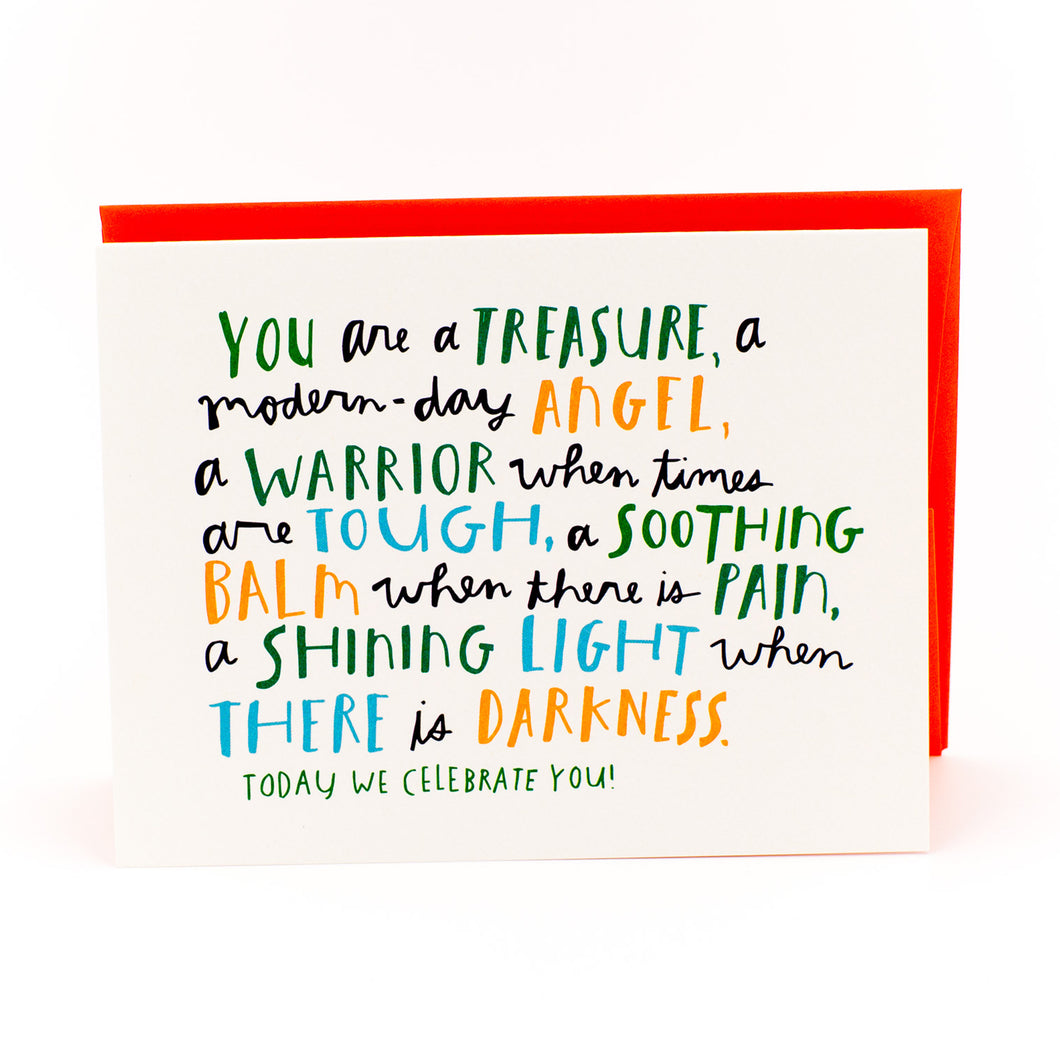 YOU are a TREASURE, a
modern-day ANGEL,
a WARRIOR when times
are TOUGH, a SOOTHING
BALM when there is PAIN,
a SHINING LIGHT when
THERE is DARKNESS.
TODAY WE CELEBRATE YOU!